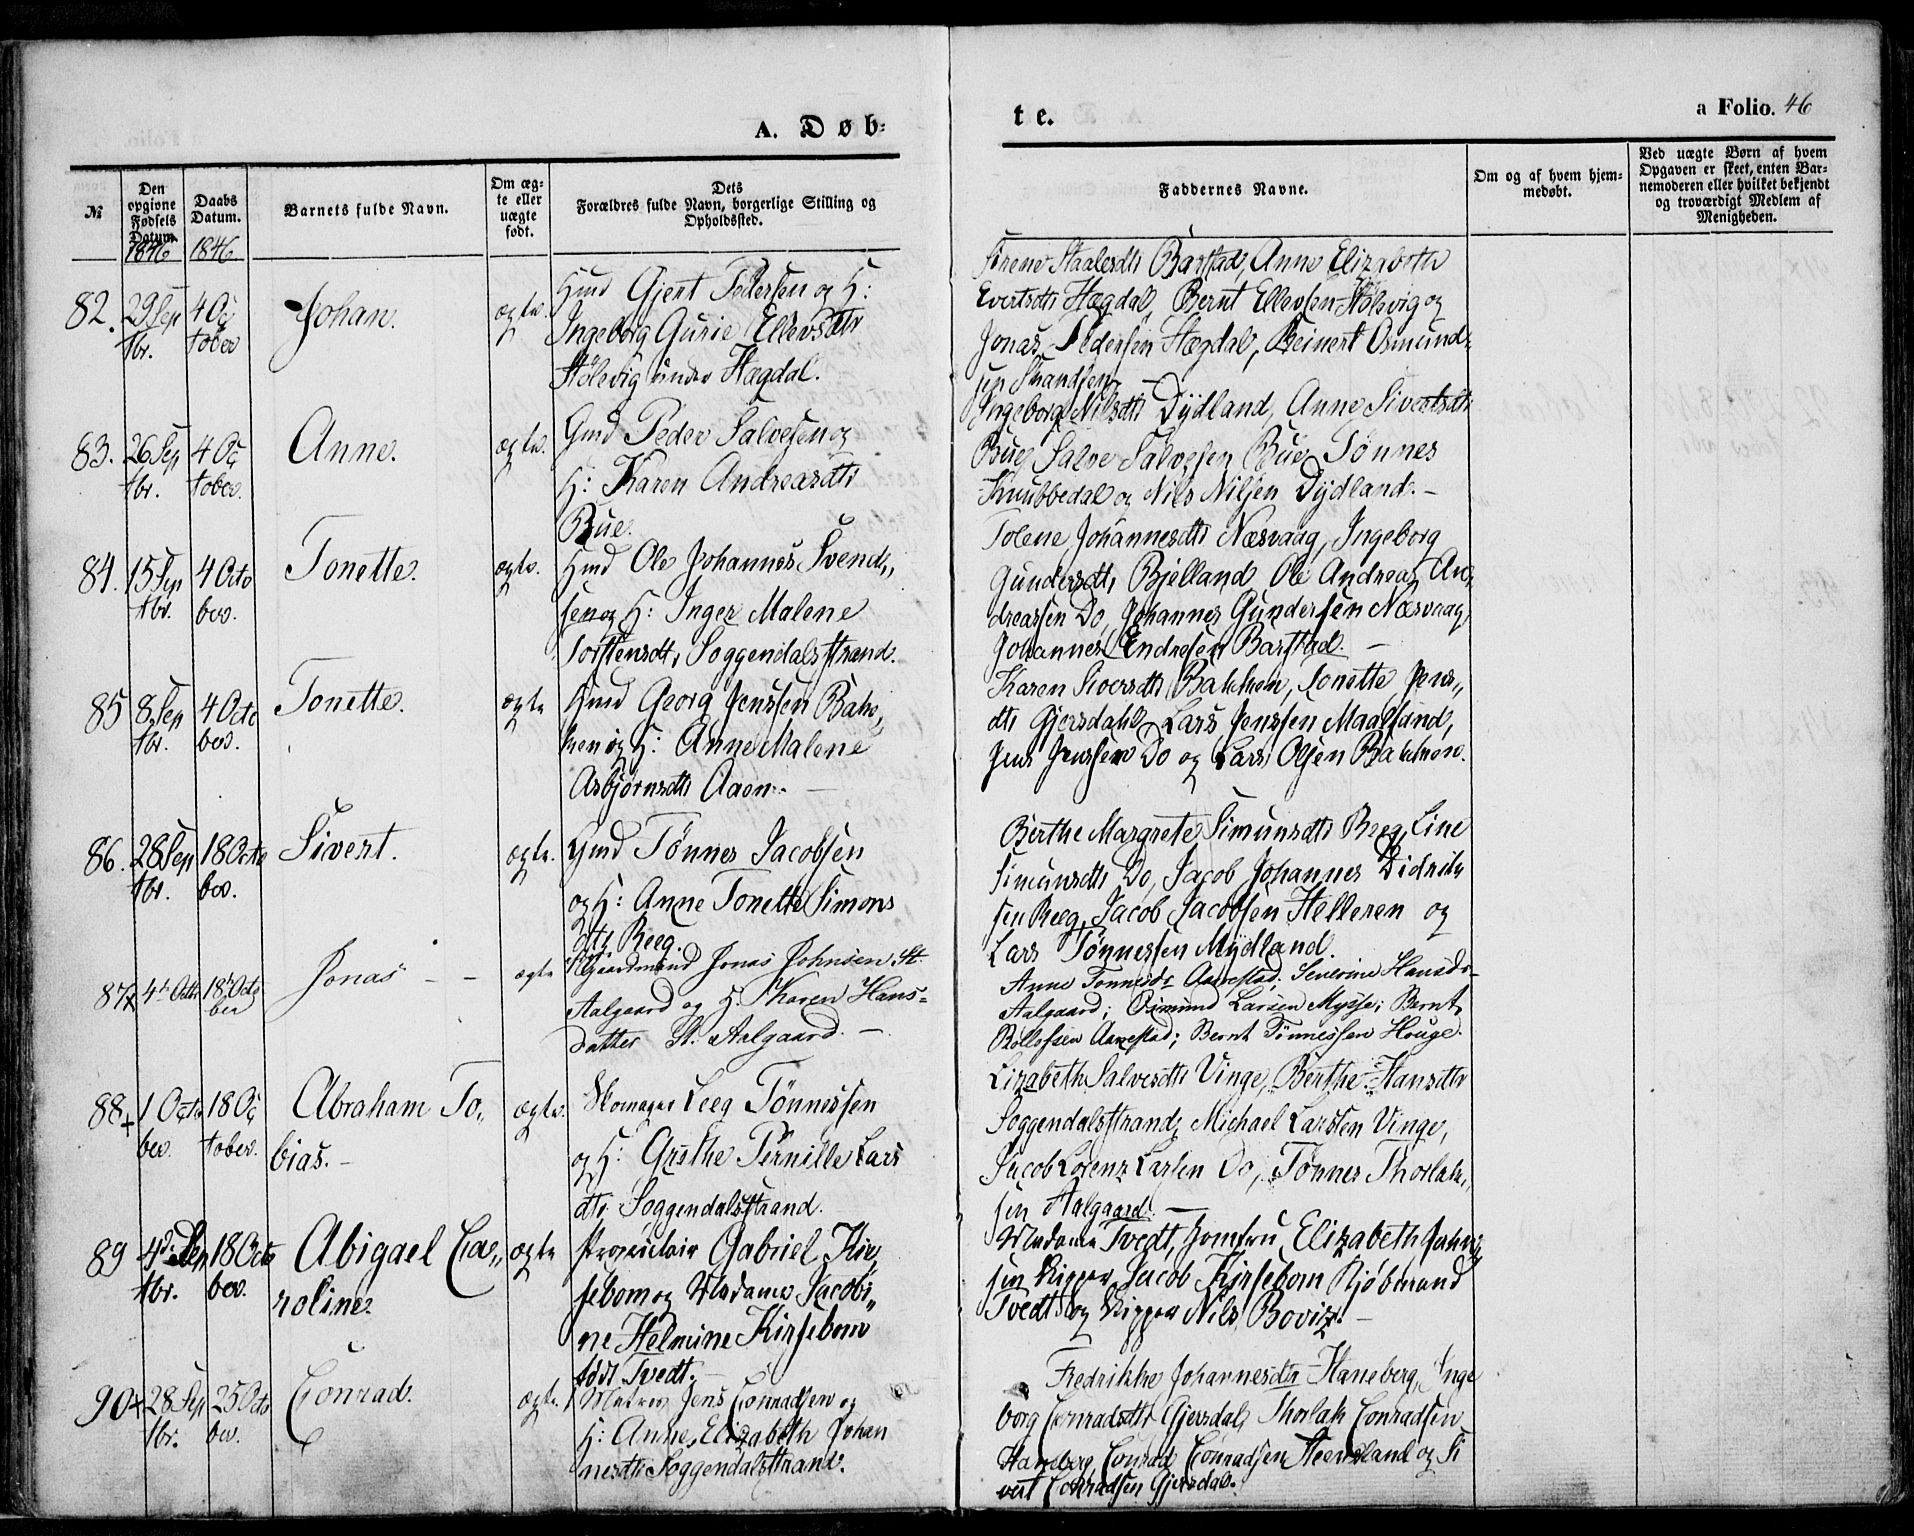 A. Døb-
te.
a Folio. 46
№
Den opgivne Fødsels Datum.
Daabs Datum.
Barnets fulde Navn.
Om ægte eller uægte født.
Dets
Forældres fulde Navn, borgerlige Stilling og Opholdssted.
Faddernes Navne.
Om og af hvem hjemmedøbt.
Ved uægte Børn af hvem Opgaven er skeet, enten Barnemoderen eller hvilket bekjendt og troværdigt Medlem af Menigheden.
1846 1846
82. 29 Sep
tbr. 4 Oc
tober Johan. ægte.
Hmd Gjert Pedersen og H:
Ingeborg Gurie Ellevsdtr
Stølsvig under Hægdal.
Sirene Staalesdtr Barstad, Anne Elizabeth
Evertsdtr Hægdal, Bernt Ellevsen Stølsvig og
Jonas Pedersen Hægdal, Reinert Osmund-
sen Strandsen.
83. 26 Sep
tbr. 4 Oc
tober. Anne. ægte.
Gmd Peder Salvesen og
H: Karen Andreasdtr
Bue.
Ingeborg Nilsdtr Dydland, Anne Sivertsdtr
Bue, Salve Salvesen Bue, Tønnes
Knubbedal og Nils Nilsen Dydland. -
84. 15 Sep
tbr. 4 Octo
ber. Tonette. ægte.
Hmd Ole Johannes Svend,,
sen og H: Inger Malene
Torstensdtr Soggendalsstrand.
Tolene Johannesdtr Næsvaag, Ingeborg
Gundersdtr Bjelland, Ole Andreas An,
dreassen Do, Johannes Gundersen Næsvaag,
Johannes Endresen Barstad. -
85 8 Sep
tbr. 4 Octo
ber. Tonette. ægte
Hmd Georg Jenssen Bak,
ken og H: Anne Malene
Asbjørnsdtr Aaen. -
Karen Siversdtr Bakken, Tonette Jens,,
dtr Gjersdahl, Lars Jenssen Maalsund,
Jens Jenssen Do og Lars Olsen Bakken.
86. 28 Sep
tbr. 18 Octo
ber. Sivert. ægte.
Gmd Tønnes Jacobsen
og H: Anne Tonette Simons
dtr Reeg.
Berthe Margrete Simunsdtr Reeg, Line
Simunsdtr Do, Jacob Johannes Didrik
sen Reeg, Jacob Jacobsen Helleren og
Lars Tønnessen Mydland.
87 4de Octbr 18 Octo
ber Jonas - - ægte
Gaardmand Jonas Johnsen St.
Aalgaard og H. Karen Hans-
datter St. Aalgaard. -
Anne Tonnesdr Aarestad; Severine Hansdr
Aalgaard; Osmund Larsen Mysse; Bernt
Rollefsen Aarestad; Bernt Tønnessen Houge.
88 1 Octo
ber. 18 Oc
tober. Abraham To,,
bias. - ægte.
Skomager Leeg Tønnessen
og H: Grethe Pernille Lars
dtr Soggendalsstrand.
Lizabeth Salvesdtr Vinge, Berthe Hansdtr
Soggendalsstrand, Michael Larsen Vinge,
Jacob Lorenz Larsen Do, Tønnes Thorlak,,
sen Aalgaard. -
89 4de Sep
tbr. 18 Octo
ber. Abigael Ca,,
roline. ægte
Proprietair Gabriel Kir,
sebom og Madame Jacobi,,
ne Helmine Kirsebom
født Tvedt. -
Madame Tvedt, Jomfru Elizabeth
sen, Skipper Jacob Kirsebom Kjøbmand
Tvedt og Skipper Nils Bovitz. -
90 28 Sep
tbr. 25 Octo
ber. Conrad. ægte.
Matros Jens Conradsen og
H: Anne Elizabeth Johan
nesdtr Soggendalsstrand.
Fredrikke Johannesdtr Haneberg, Inge
borg Conradsdtr Gjersdal, Thorlak Conradsen
Haneberg, Conrad Conradsen Steensland og Si
vert Conradsen Gjersdal.